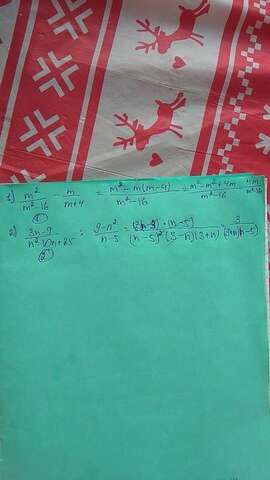 1) m²/(m²-16) - m/(m+4) = (m²-m(m-4))/(m²-16) = (m²-m²+4m)/(m²-16) = 4m/(m²-16)
2) (3n-9)/(n²-10n+25) : (9-n²)/(n-5) = (3(n-3)·(n-5))/((n-5)²(3-n)(3+n)) = 3/((3+n)(n-5))